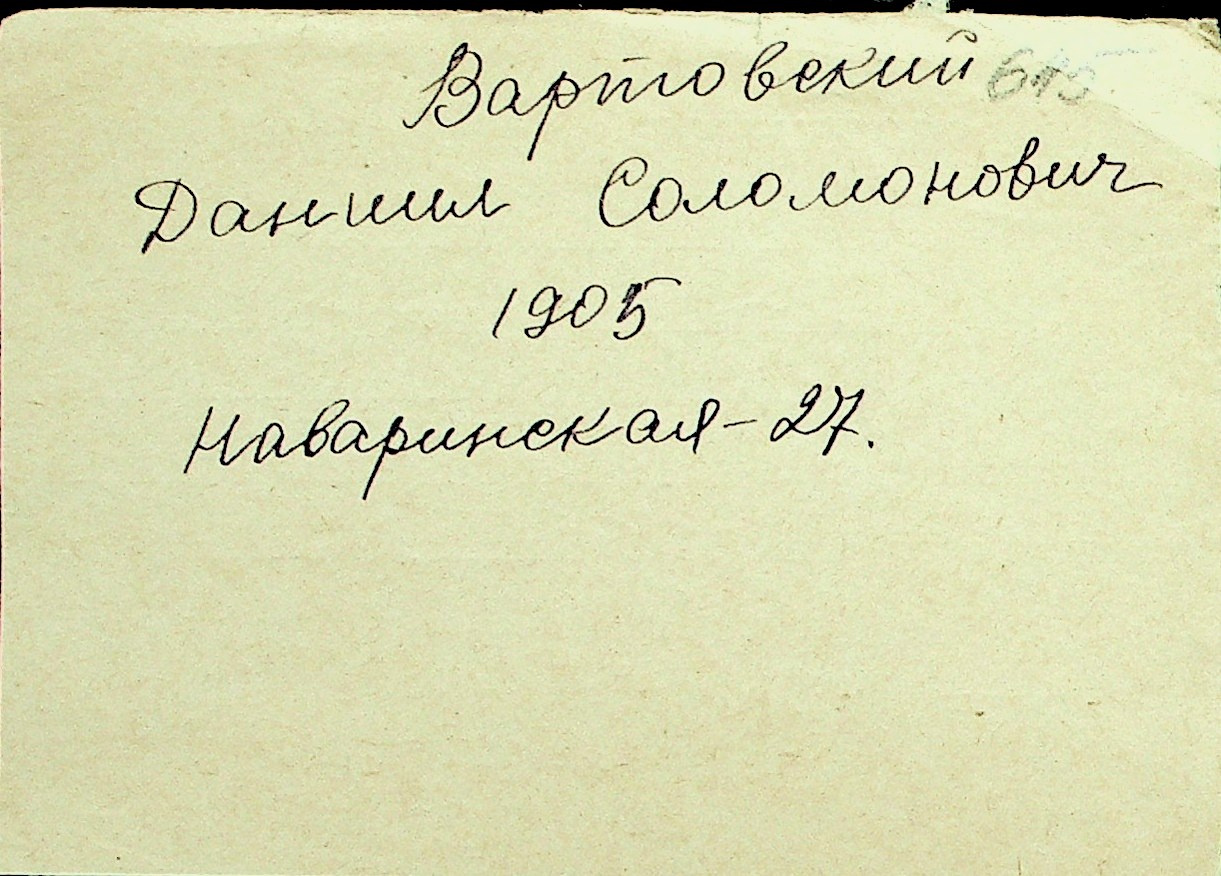 Вартовский
Даниил Соломонович
1905
Наваринская - 27.